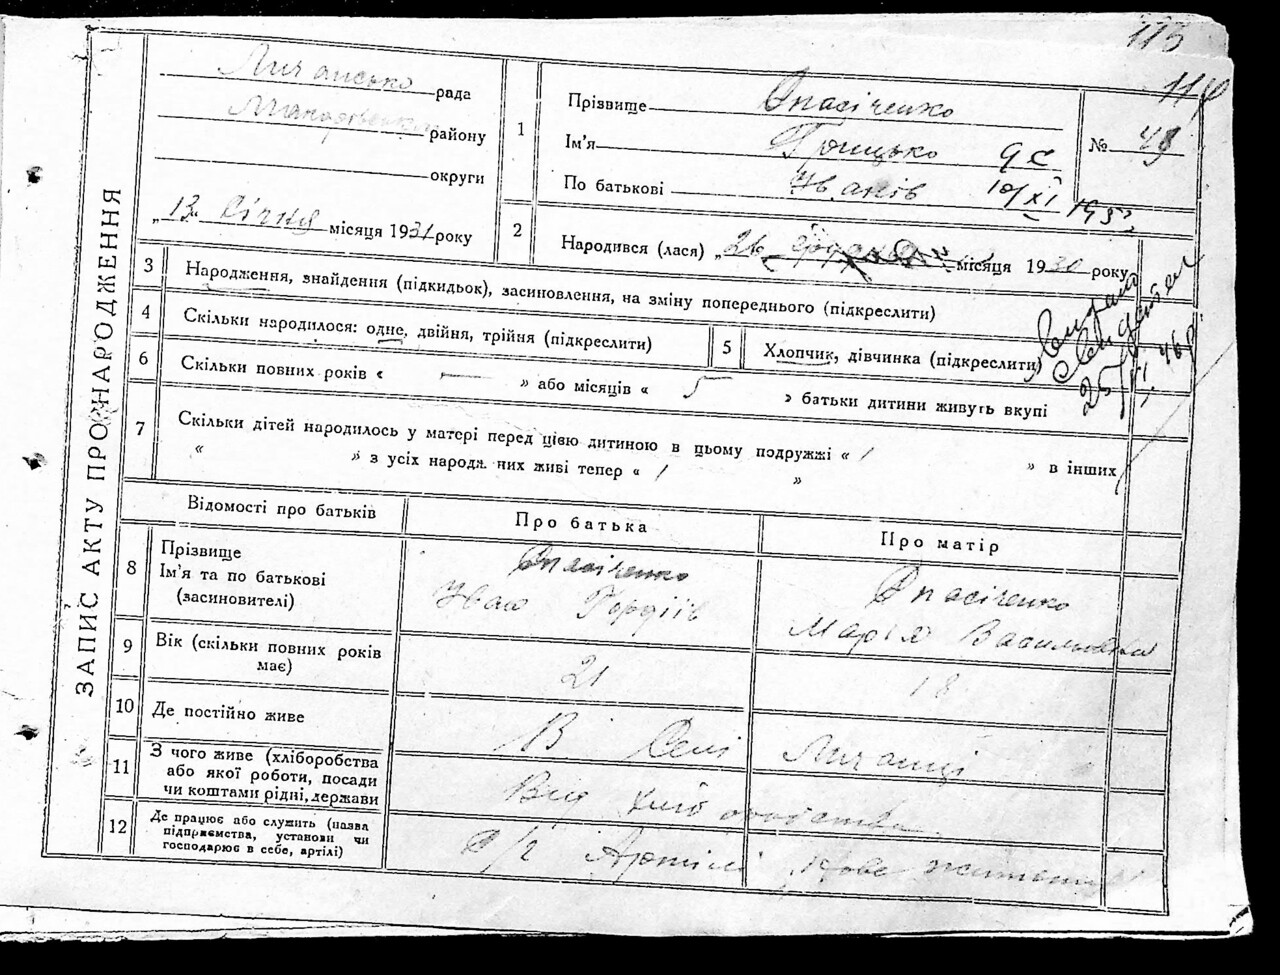 115
114
ЗАПИС АКТУ ПРО НАРОДЖЕННЯ
Личансько рада
району
округи
„13 Січня місяця 1931 року
1
Прізвище Опасіченко
Ім'я Грицько
По батькові Іванів
10/XI 1953
№ 48
2
Народився (лася) „26 грудня місяця 1930 року
3
Народження, знайдення (підкидьок), засиновлення, на зміну попереднього (підкреслити)
4
Скільки народилося: одне, двійня, трійня (підкреслити)
5
Хлопчик, дівчинка (підкреслити)
6
Скільки повних років « — » або місяців « 5 » батьки дитини живуть вкупі
7
Скільки дітей народилось у матері перед цією дитиною в цьому подружжі « / » в інших
« » з усіх народж них живі тепер « / »
Відомості про батьків
Про батька
Про матір
8
Прізвище
Ім'я та по батькові
(засиновителі)
Опасіченко
Іван Гордіїв
Опасіченко
Марія Василівна
9
Вік (скільки повних років має)
21
18
10
Де постійно живе
В Селі Личанці
11
З чого живе (хліборобства
або якої роботи, посади
чи коштами рідні, держави
Від хліборобства
12
Де працює або служить (назва
підприємства, установи чи
господарює в себе, артілі)
С/г Артілі Нове життя